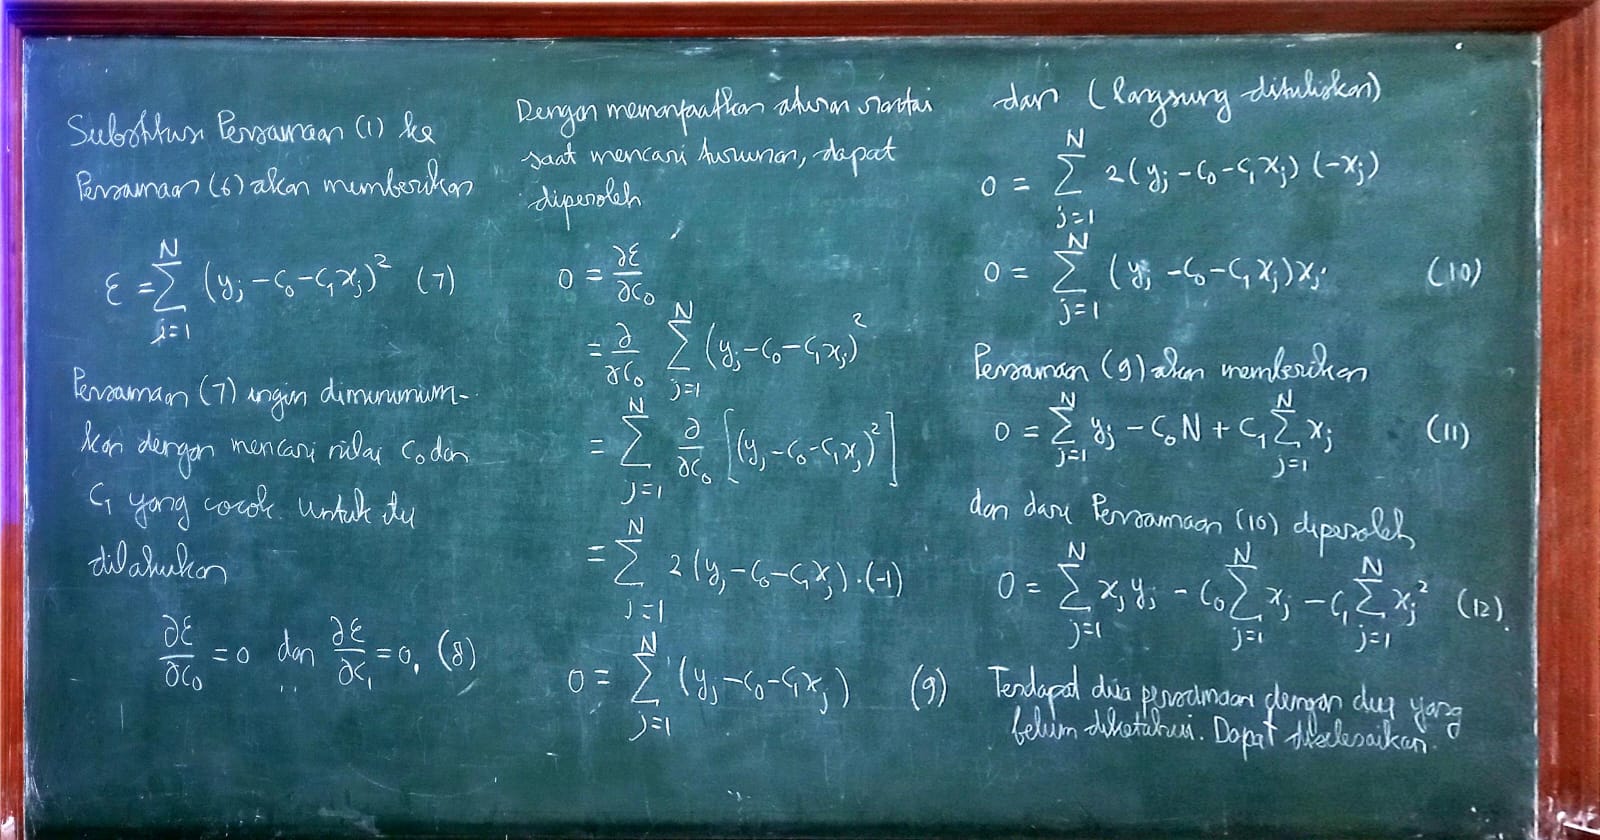 Substitusi Persamaan (1) ke
Persamaan (6) akan memberikan
ε = ∑_{j=1}^{N} (y_j - c_0 - c_1 x_j)^2 (7)
Persamaan (7) ingin diminimum-
kan dengan mencari nilai c_0 dan
c_1 yang cocok. Untuk itu
dilakukan
∂ε/∂c_0 = 0 dan ∂ε/∂c_1 = 0. (8)
Dengan memanfaatkan aturan rantai
saat mencari turunan, dapat
diperoleh
0 = ∂ε/∂c_0
= ∂/∂c_0 ∑_{j=1}^{N} (y_j - c_0 - c_1 x_j)^2
= ∑_{j=1}^{N} ∂/∂c_0 [(y_j - c_0 - c_1 x_j)^2]
= ∑_{j=1}^{N} 2(y_j - c_0 - c_1 x_j)·(-1)
0 = ∑_{j=1}^{N} (y_j - c_0 - c_1 x_j) (9)
dan (langsung dituliskan)
0 = ∑_{j=1}^{N} 2(y_j - c_0 - c_1 x_j) (-x_j)
0 = ∑_{j=1}^{N} (y_j - c_0 - c_1 x_j) x_j. (10)
Persamaan (9) akan memberikan
0 = ∑_{j=1}^{N} y_j - c_0 N + c_1 ∑_{j=1}^{N} x_j (11)
dan dari Persamaan (10) diperoleh
0 = ∑_{j=1}^{N} x_j y_j - c_0 ∑_{j=1}^{N} x_j - c_1 ∑_{j=1}^{N} x_j^2 (12).
Terdapat dua persamaan dengan dua yang
belum diketahui. Dapat diselesaikan.